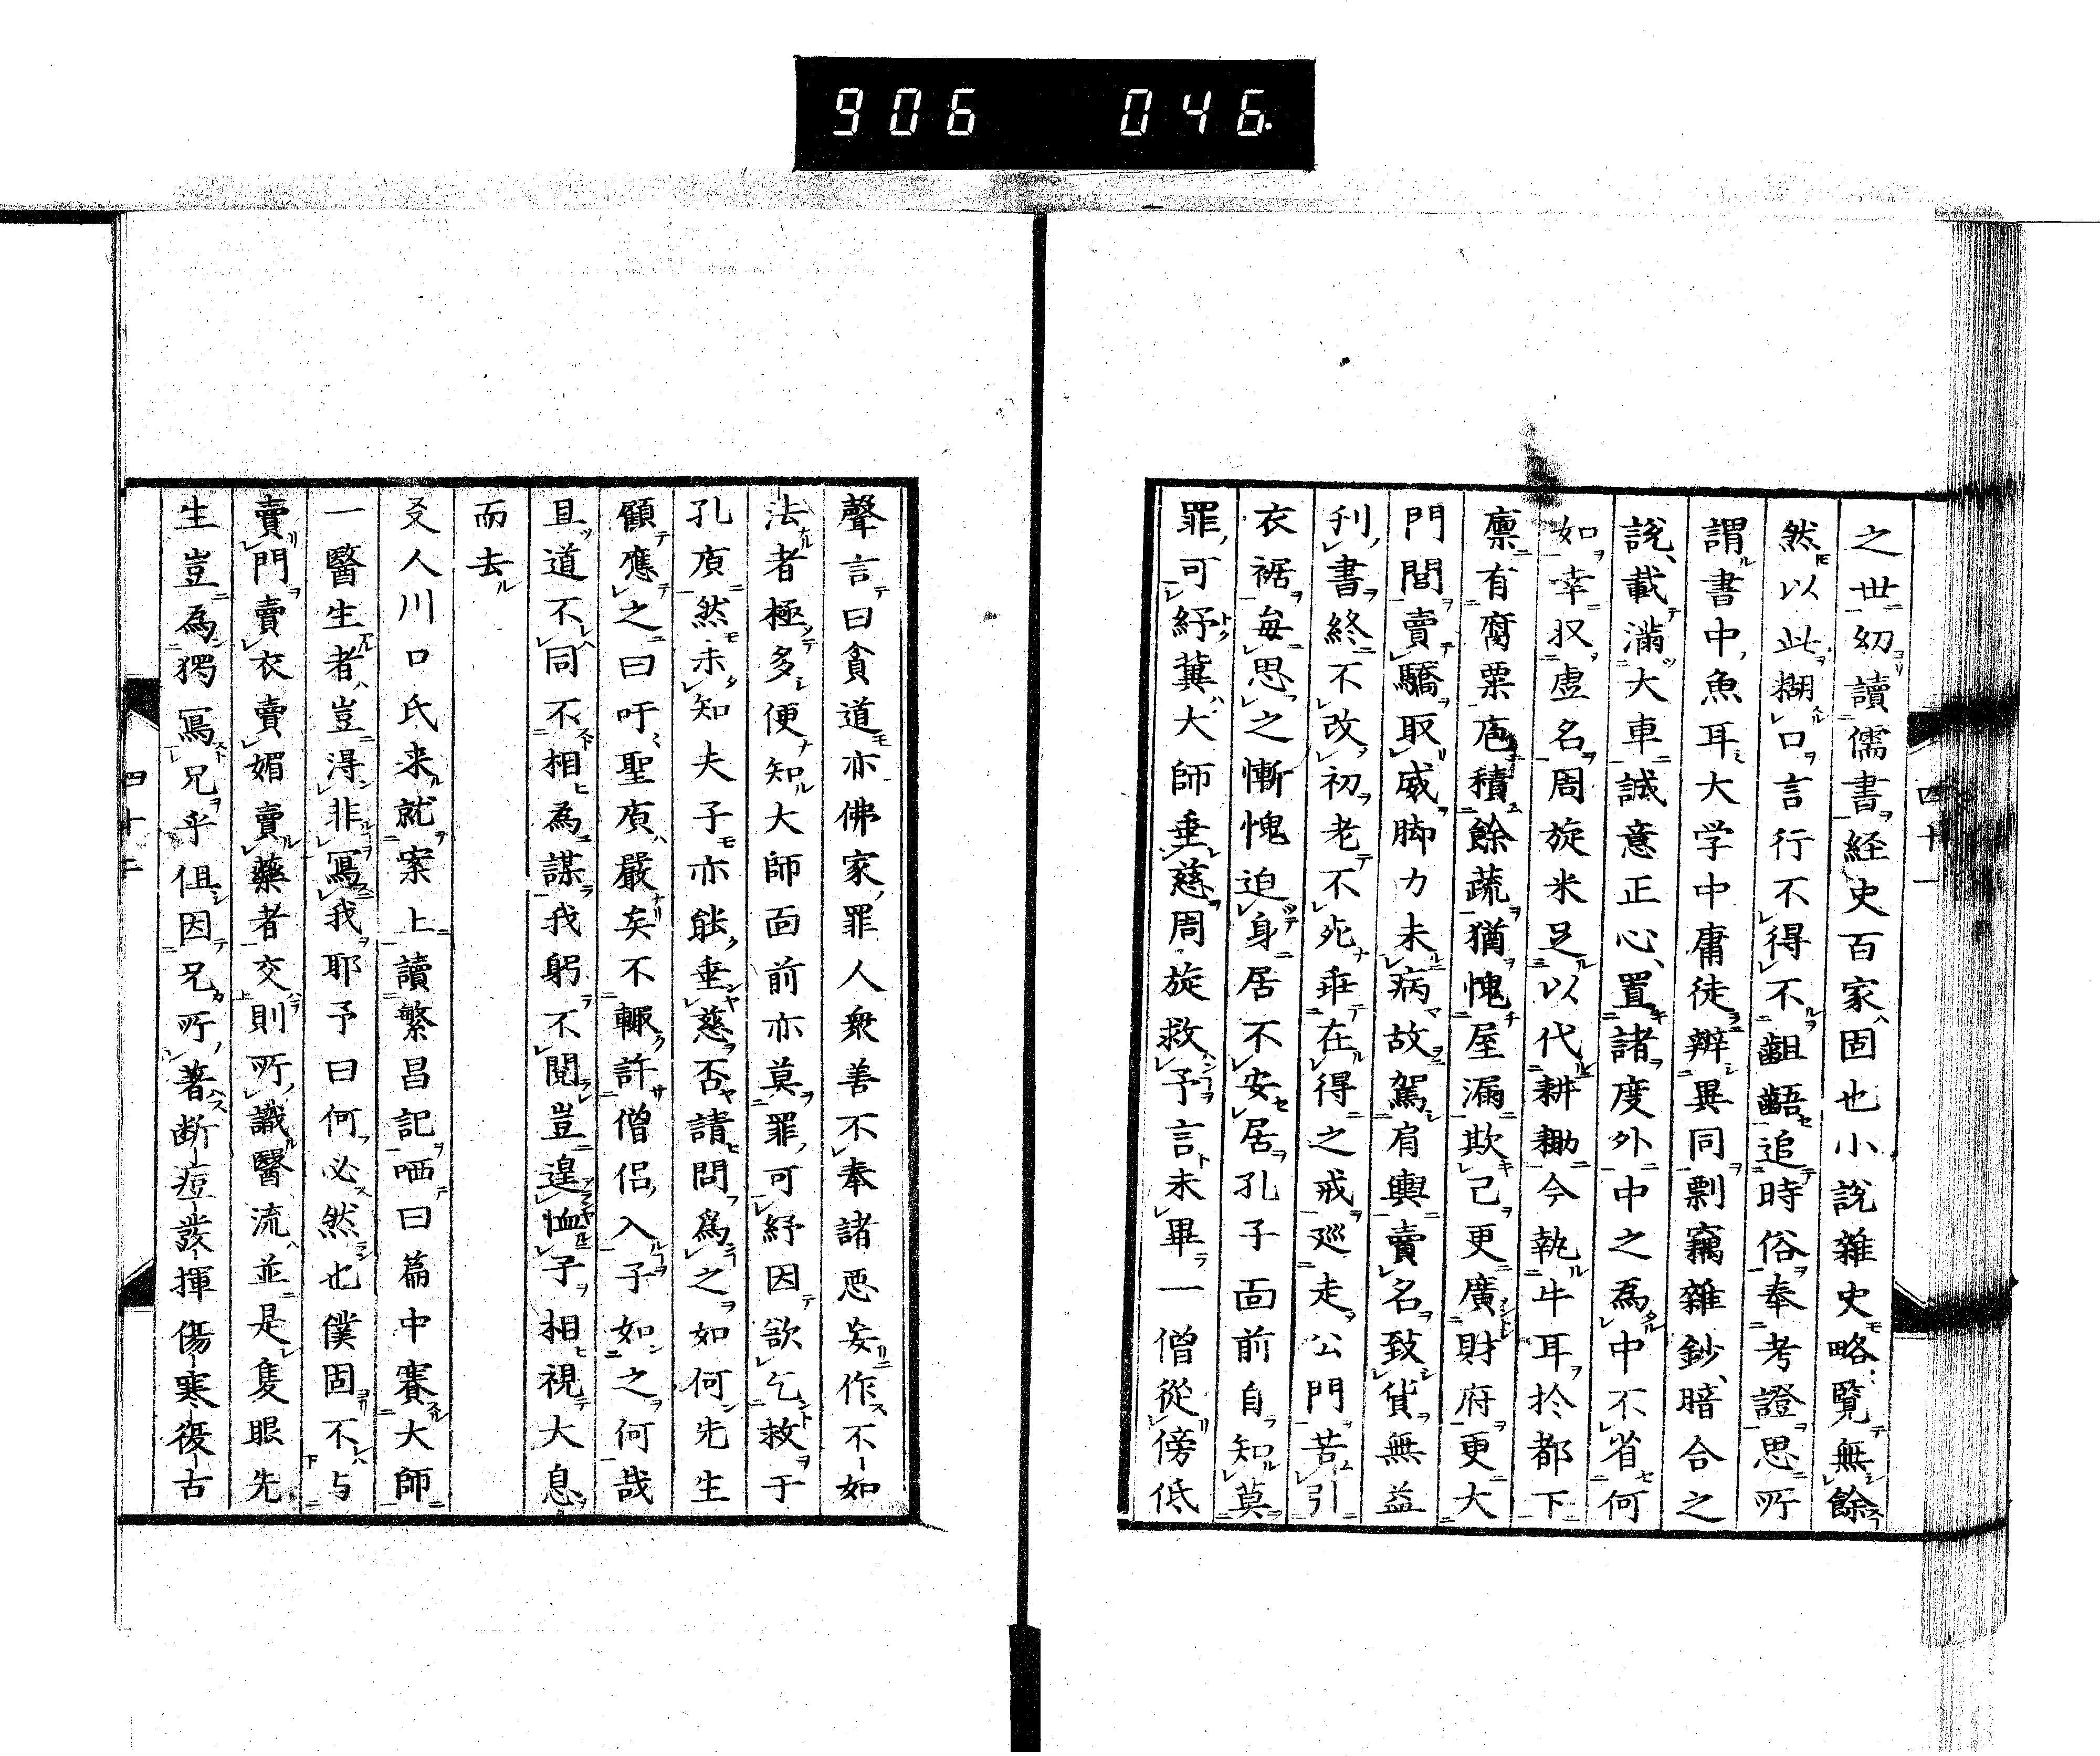 906 046
四十一
之世幼讀儒書経史百家固也小說雜史略覽無餘
然以此糊口言行不得不齟齬追時俗奉考證思所
謂書中魚耳大学中庸徒辨異同剽竊雜鈔暗合之
說載滿大車誠意正心置諸度外中之為中不省何
如幸収虚名周旋米足以代耕耡今執牛耳於都下
廪有腐粟庖積餘蔬猶愧屋漏欺己更廣財府更大
門閭賣驕取威脚力未病故駕肩輿賣名致貨無益
刋書終不改初老不死垂在得之戒廵走公門苦引
衣裾每思之慚愧迫身居不安居孔子面前自知莫
罪可紓冀大師垂慈周旋救予言未畢一僧從傍低
聲言曰貪道亦佛家罪人衆善不奉諸悪妄作不如
法者極多便知大師面前亦莫罪可紓因欲乞救于
孔廟然未知夫子亦能垂慈否請問為之如何先生
顧應之曰吁聖廟嚴矣不輙許僧侶入子如之何哉
且道不同不相為謀我躬不閱豈遑恤子相視大息
而去
友人川口氏来就案上讀繁昌記哂曰篇中賽大師
一醫生者豈得非寫我耶予曰何必然也僕固不与
賣門賣衣賣媚賣藥者交則所識醫流並是隻眼先
生豈為獨寫兄乎但因兄所著断痘發揮傷寒復古
四十二